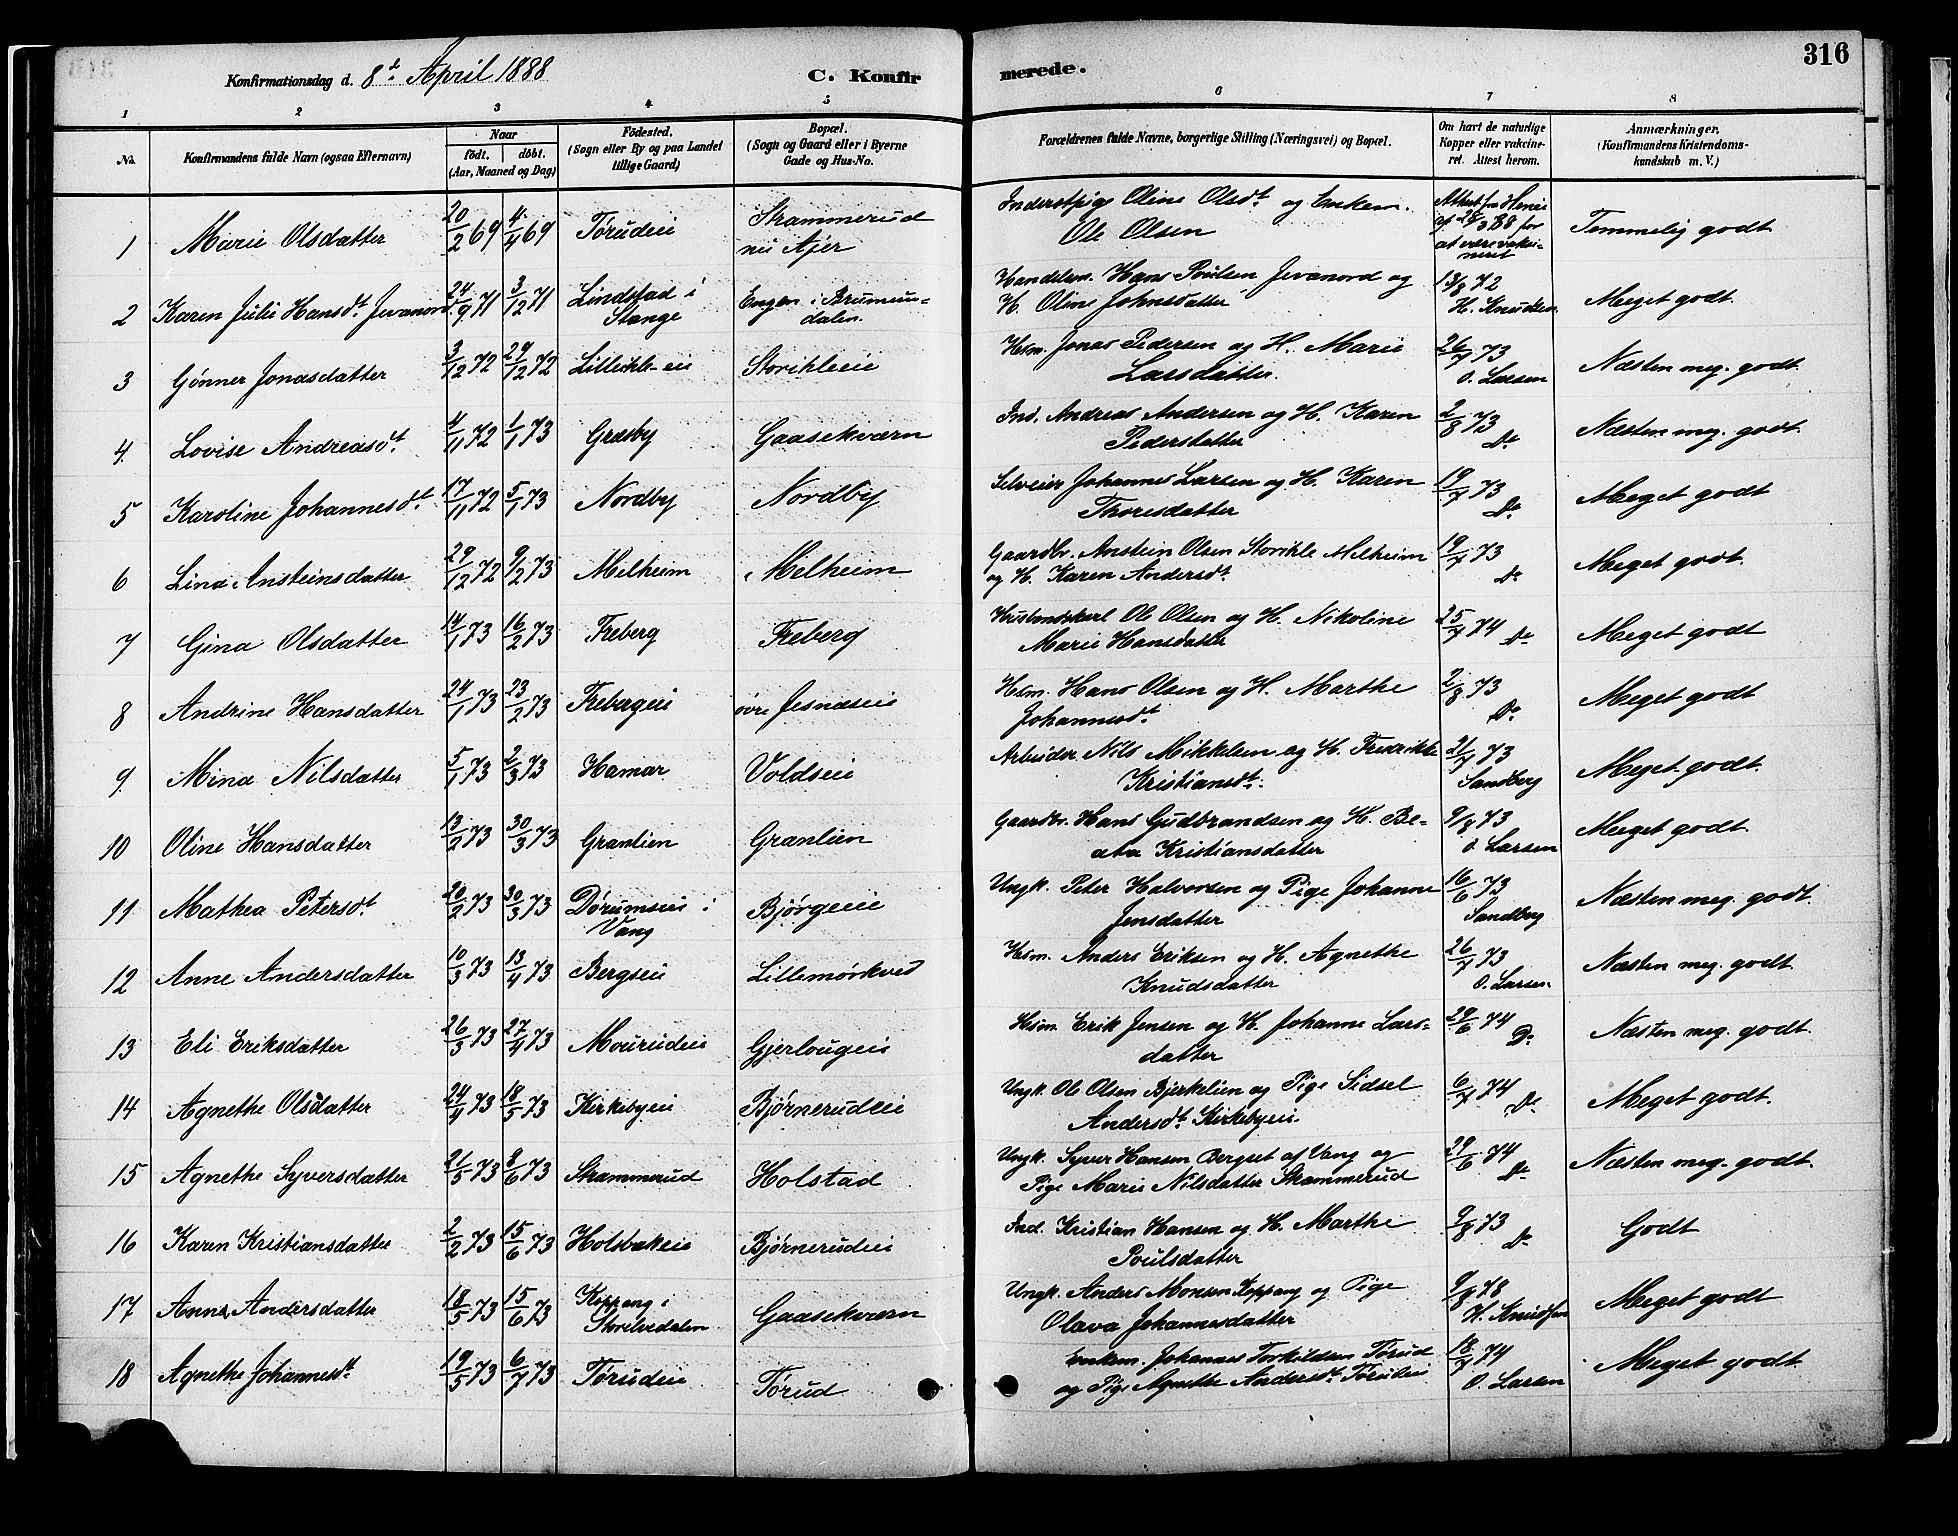 316
Konfirmationsdag d. 8de April 1888 C. Konfirmerede.
1 2 3 4 5 6 7 8
No. Konfirmandens fulde Navn (ogsaa Efternavn) Naar födt. döbt. (Aar, Maaned og Dag) Födested. (Sogn eller By og paa Landet tillige Gaard) Bopæl. (Sogn og Gaard eller i Byerne Gade og Hus-No. Forældrenes fulde Navne, borgerlige Stilling (Næringsvei) og Bopæl. Om havt de naturlige Kopper eller vakcineret. Attest herom. Anmærkninger. (Konfirmandens Kristendomskundskab m. V.)
1 Marie Olsdatter 20/2 69 4/4 69 Tørudeie Strammerud nu Ajer Inderstpige Oline Olsdt og Enkem. Ole Olsen 88 for at være vaksineret Temmelig godt
2 Karen Julie Hansdt Jevanord 24/9 71 3/12 71 Lindstad i Stange Engen i Brumundalen Handelsm. Hans Poulsen Jevanord og H. Oline Johnsdatter 13/8 72 H. Knudsen Meget godt
3 Gønner Jonasdatter 3/12 72 29/12 72 Lillehleeie Storihleeie Hsm. Jonas Pedersen og H. Marie Larsdatter 26/7 73 O. Larsen Næsten meg. godt
4 Lovise Andreasdt 4/11 72 1/1 73 Græsby Gaasekværn Ind. Andreas Andersen og H. Karen Pedersdatter 2/8 73 Do Næsten meg. godt
5 Karoline Johannesdt 17/11 72 5/1 73 Nordby Nordby Selveier Johannes Larsen og H. Karen Thoresdatter 19/7 73 Do Meget godt
6 Lina Ansteinsdatter 29/12 72 9/2 73 Melheim Melheim Gaardbr. Anstein Olsen Storihle Melheim og H. Karen Andersdt 19/7 73 Do Meget godt.
7 Gina Olsdatter 14/1 73 16/2 73 Freberg Freberg Husmandskarl Ole Olsen og H. Nikoline Marie Hansdatter 25/7 74 Do Meget godt
8 Andrine Hansdatter 24/1 73 23/2 73 Frebergeie øvre Jesnæseie Hsm. Hans Olsen og H. Marthe Johannesdt 2/8 73 Do Meget godt
9 Mina Nilsdatter 5/1 73 2/3 73 Hamar Voldseie Arbeider Nils Mikkelsen og H. Fredrikke Kristiansdt. 21/7 73 Sandberg Meget godt.
10 Oline Hansdatter 13/2 73 30/3 73 Granlien Granlien Gaardbr. Hans Gudbrandsen og H. Beata Kristiansdatter 9/8 73 O Larsen Meget godt
11 Mathea Petersdt 20/2 73 30/3 73 Dørumseie i Vang Bjørgeeie Ungk. Peter Halvorsen og Pige Johanne Jensdatter 16/6 73 Sandberg Næsten meg. godt
12 Anne Andersdatter 10/3 73 13/4 73 Bergseie Lillemørkved Hsm. Anders Eriksen og H. Agnethe Knudsdatter 26/7 73 O. Larsen Næsten meg. godt
13 Eli Eriksdatter 26/3 73 27/4 73 Mourudeie Gjerlougeie Hsm. Erik Jensen og H. Johanne Larsdatter 29/6 74 Do Næsten meg. godt.
14 Agnethe Olsdatter 24/4 73 18/5 73 Kirkebyeie Bjørnerudeie Ungk. Ole Olsen Bjerkelien og Pige Sidsel Andersdt Kirkebyeie. 6/7 74 Do Meget godt.
15 Agnethe Syversdatter 21/5 73 8/6 73 Strammerud Holstad Ungk. Syver Hansen Bergset af Vang og Pige Marie Nilsdatter Strammerud 29/6 74 Do Næsten meg. godt.
16 Karen Kristiansdatter 2/2 73 15/6 73 Holsbakeie Bjørnerudeie Ind. Kristian Hansen og H. Marthe Poulsdatter 9/8 73 Do Godt
17 Anna Andersdatter 18/5 73 15/6 73 Koppang i Storelvedalen Gaasekværn Ungk. Anders Monsen Koppang og Pige Olava Johannesdatter 9/8 78 H. Knudsen Meget godt
18 Agnethe Johannesdt 19/5 73 6/7 73 Tørudeie Tørud Enkem. Johannes Torkildsen Tørud og Pige Agnethe Andersdt Tørudeie 18/7 74 O. Larsen Meget godt.